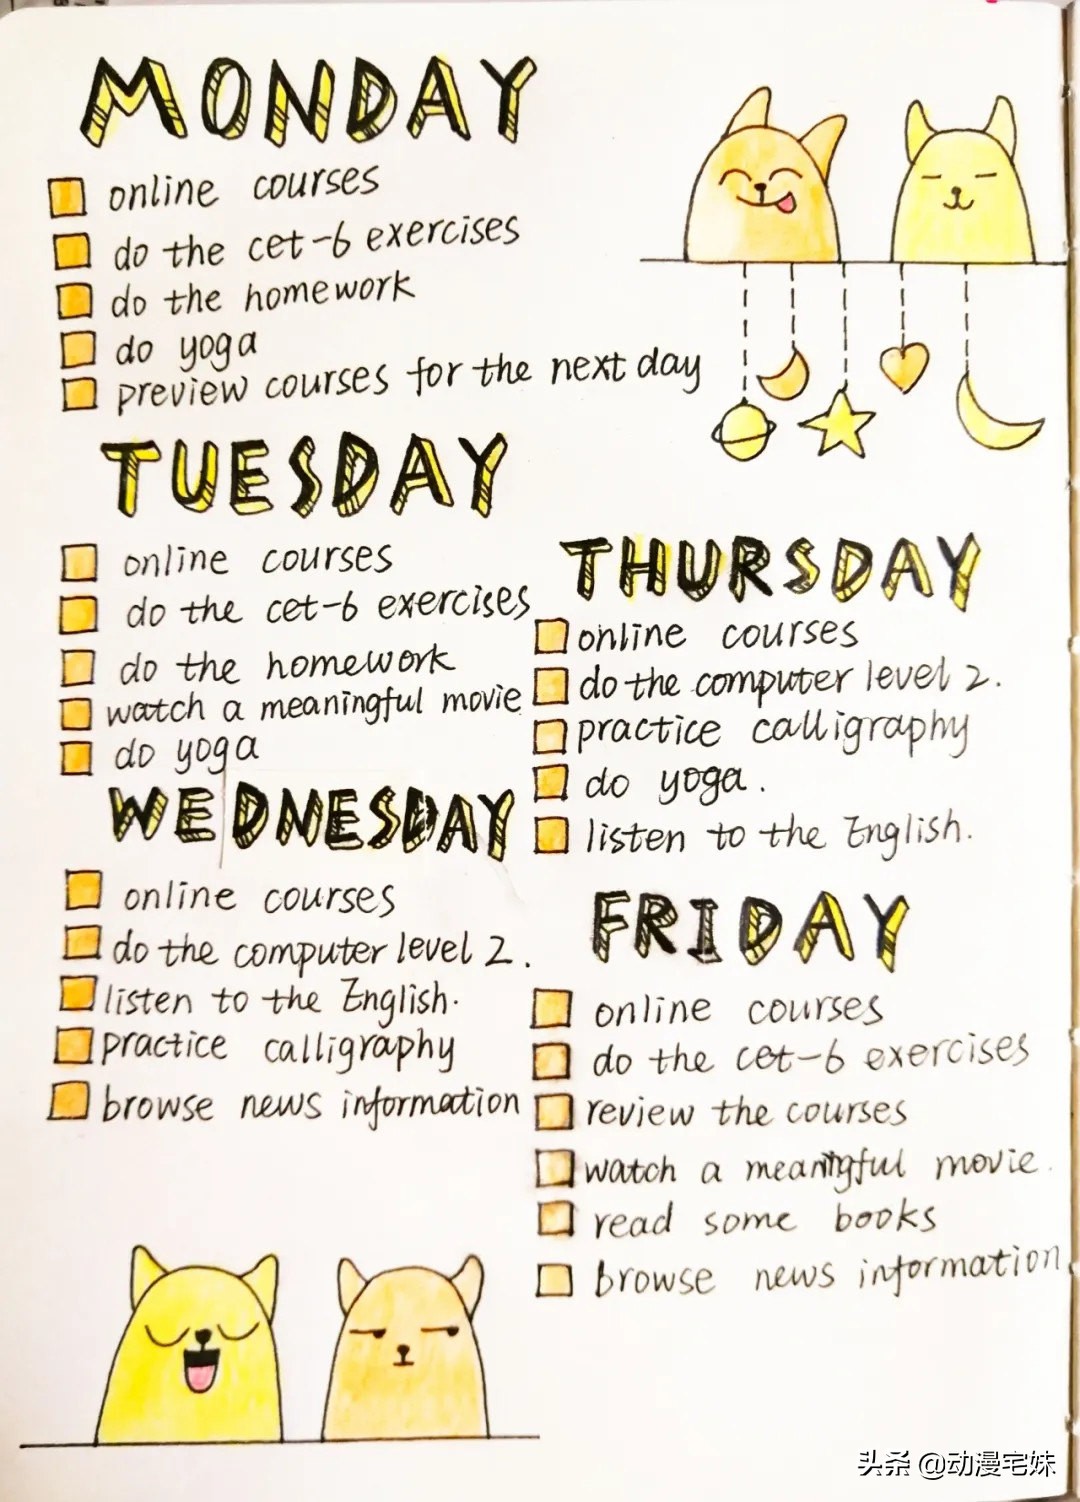 MONDAY
online courses
do the cet-6 exercises
do the homework
do yoga
preview courses for the next day
TUESDAY
online courses
do the cet-6 exercises
do the homework
watch a meaningful movie
do yoga
WEDNESDAY
online courses
do the computer level 2.
listen to the English.
practice calligraphy
browse news information
THURSDAY
online courses
do the computer level 2.
practice calligraphy
do yoga.
listen to the English.
FRIDAY
online courses
do the cet-6 exercises
review the courses
watch a meaningful movie.
read some books
browse news information
头条 @动漫宅妹